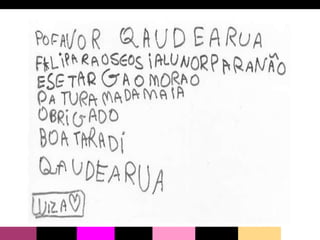 POFAVOR QAUDEARUA
FALIPARAOSEOSIALUNORPARANÃO
ESETARGAOMORAO
DATURAMADAMAIA
OBRIGADO
BOATARADI
QAUDEARUA
LUIZA